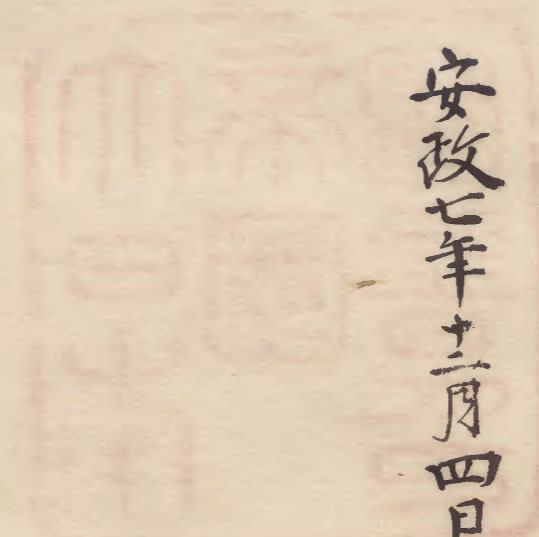 安政七年十二月四日